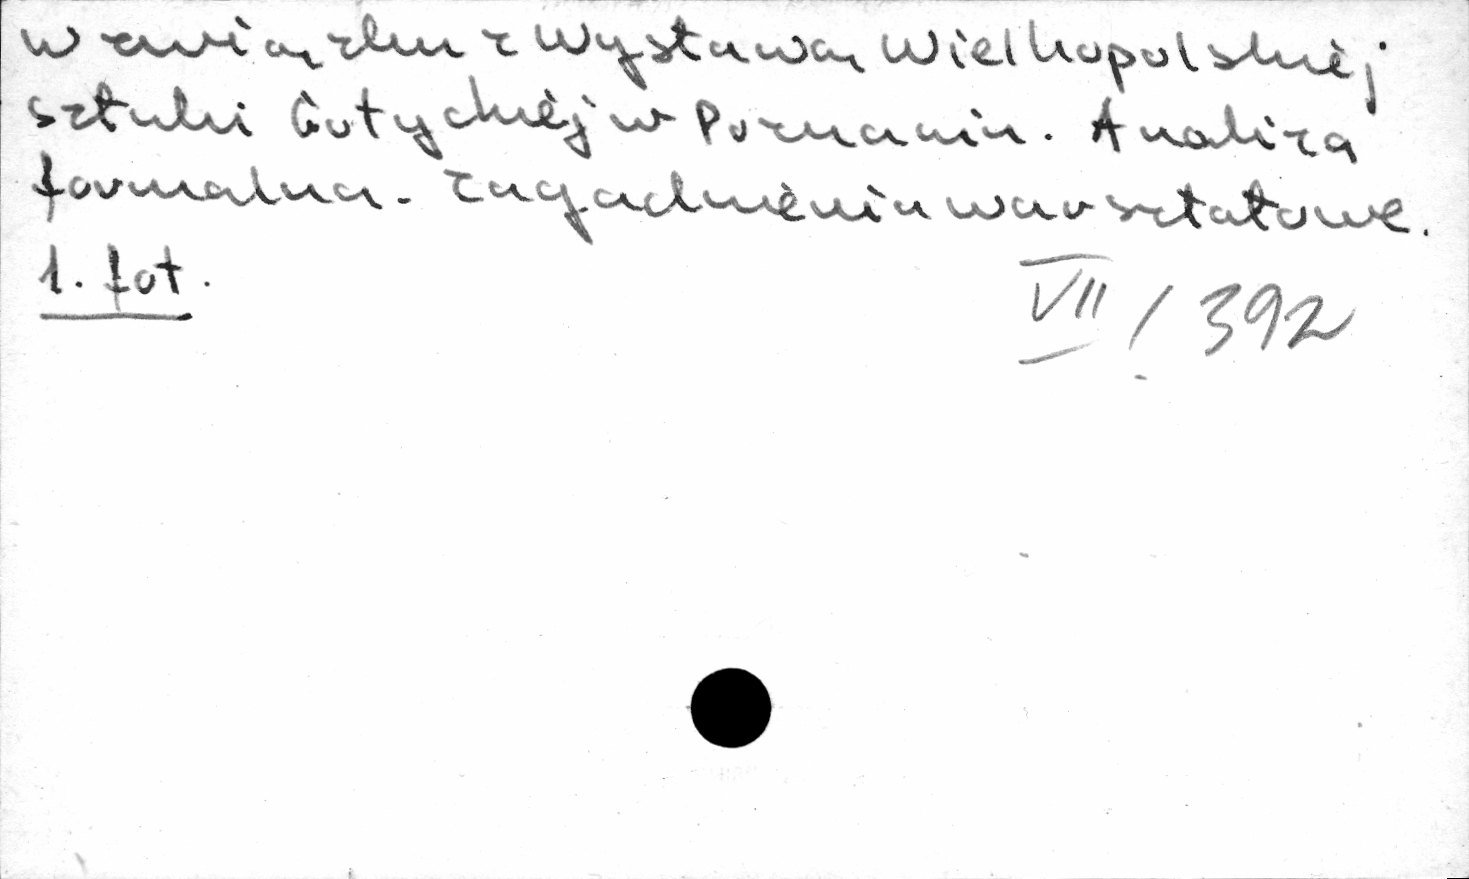 w związku z Wystawą Wielkopolskiej
sztuki Gotyckiej w Poznaniu. Analiza
formalna. Zagadnienia warsztatowe.
1. fot.
VII / 392